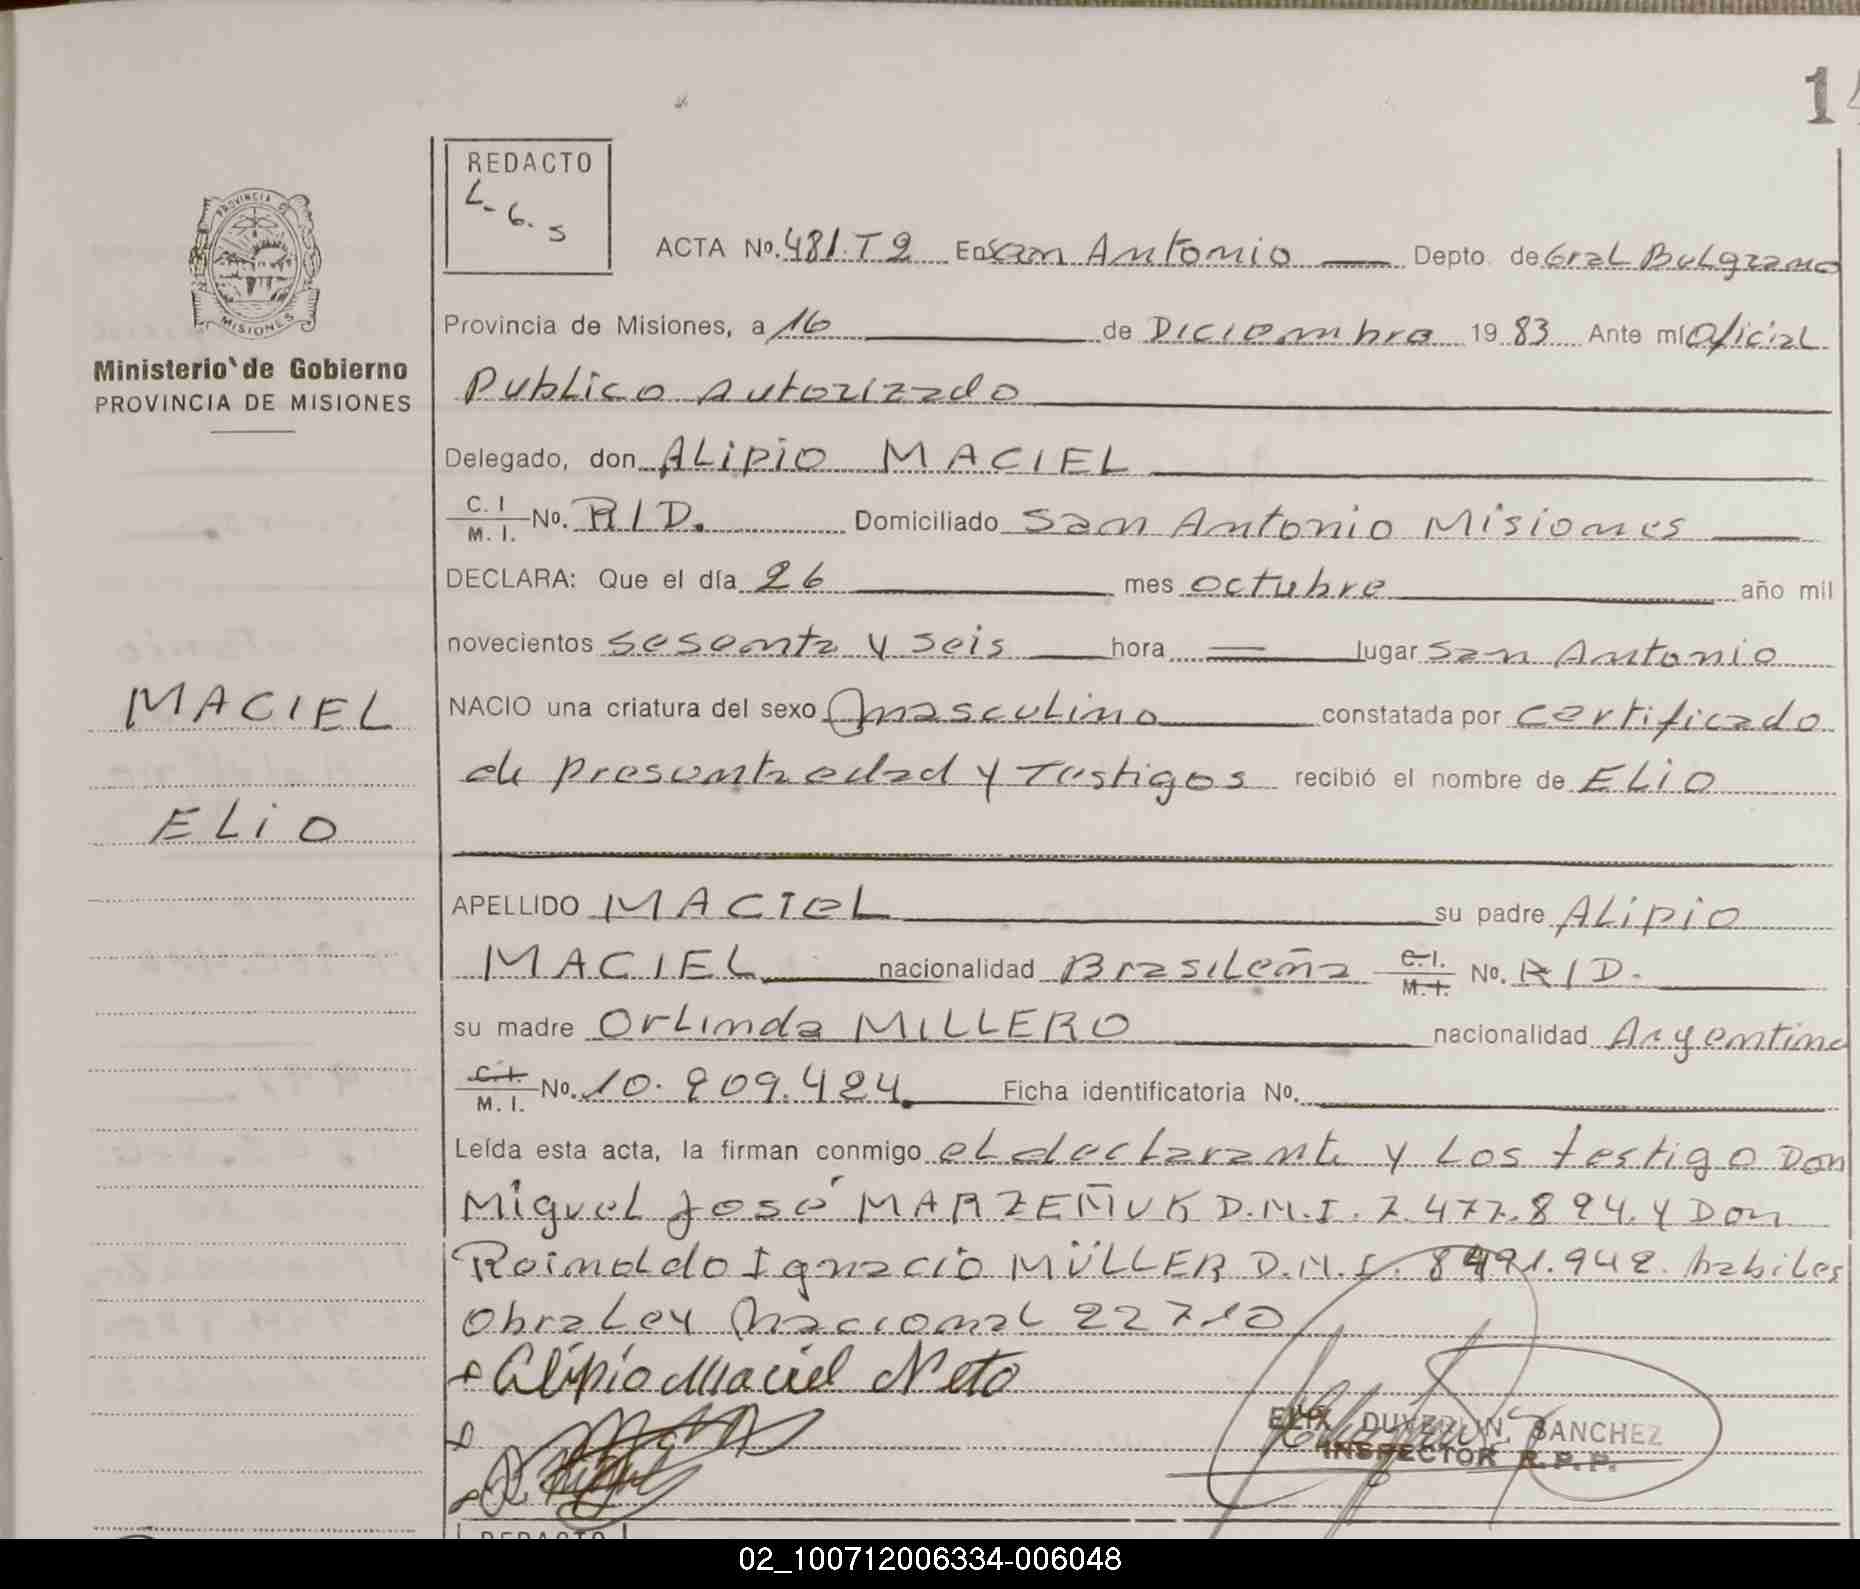 14
REDACTO
L-6.S
ACTA Nº. 481.T2 En San Antonio Depto. de Gral Belgrano
Provincia de Misiones, a 16 de Diciembre 1983 Ante mí Oficial
Publico Autorizado
PROVINCIA DE
MISIONES
Ministerio de Gobierno
PROVINCIA DE MISIONES
Delegado, don ALIPIO MACIEL
C. I
M. I. No. R/D. Domiciliado San Antonio Misiones
DECLARA: Que el día 26 mes octubre año mil
novecientos sesenta y seis hora = lugar San Antonio
MACIEL
NACIO una criatura del sexo masculino constatada por certificado
de presunta edad y Testigos recibió el nombre de ELIO
ELIO
APELLIDO MACIEL su padre ALIPIO
MACIEL nacionalidad Brasileña C.I. M.I. No. R/D.
su madre Orlinda MILLERO nacionalidad Argentina
C.I. M. I. No. 10.909.424. Ficha identificatoria No.
Leída esta acta, la firman conmigo el declarante y los testigo Don
Miguel José MARZEÑUK D.N.I. 7.477.894. y Don
Reinoldo Ignacio MÜLLER D.N.I. 8491.942. habiles
Obra Ley Nacional 22710
Alipio Maciel Neto
SANCHEZ
INSPECTOR R.P.P.
REDACTO
02_100712006334-006048